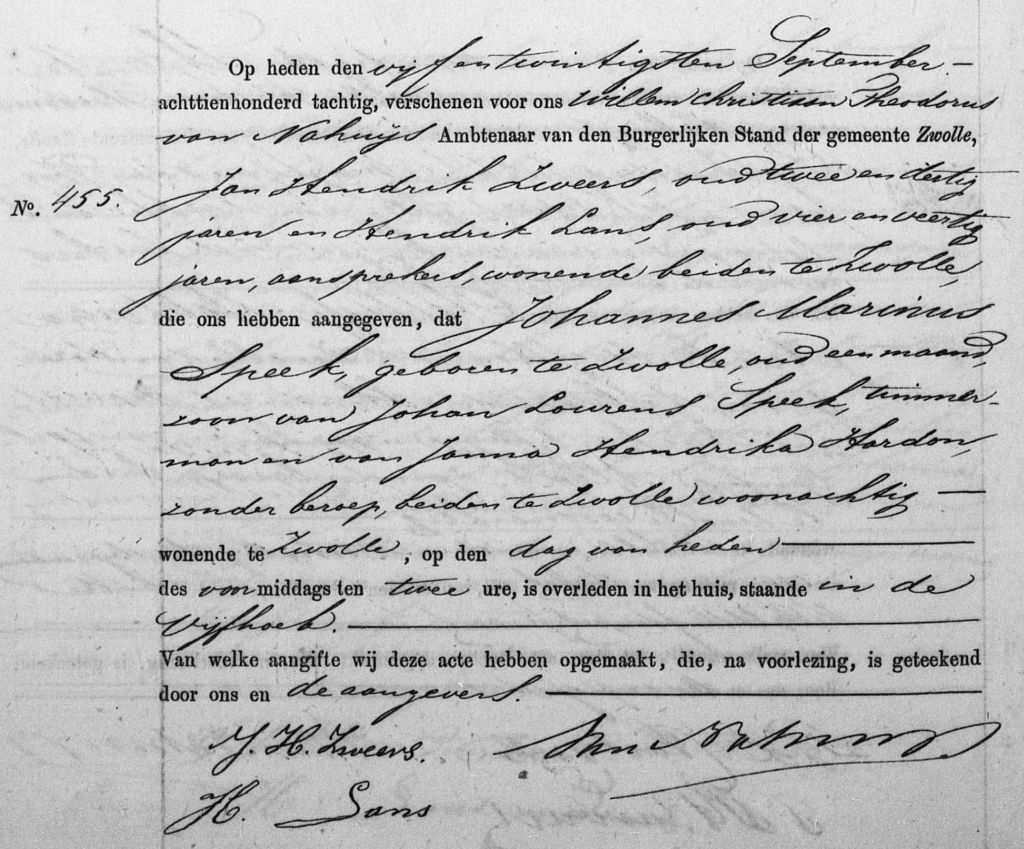 Op heden den vijfentwintigsten September –
achttienhonderd tachtig, verschenen voor ons Willem Christiaan Theodorus
van Nahuijs Ambtenaar van den Burgerlijken Stand der gemeente Zwolle,
No. 455. Jan Hendrik Zweers, oud twee en dertig
jaren en Hendrik Lans, oud vier en veertig
jaren, aansprekers, wonende beiden te Zwolle,
die ons hebben aangegeven, dat Johannes Marinus
Speek, geboren te Zwolle, oud een maand,
zoon van Johan Lourens Speek, timmer-
man en van Janna Hendrika Hardon,
zonder beroep, beiden te Zwolle woonachtig —
wonende te Zwolle, op den dag van heden —
des voormiddags ten twee ure, is overleden in het huis, staande in de
Vijfhoek. —
Van welke aangifte wij deze acte hebben opgemaakt, die, na voorlezing, is geteekend
door ons en de aangevers. —
J. H. Zweers. van Nahuys
H. Lans